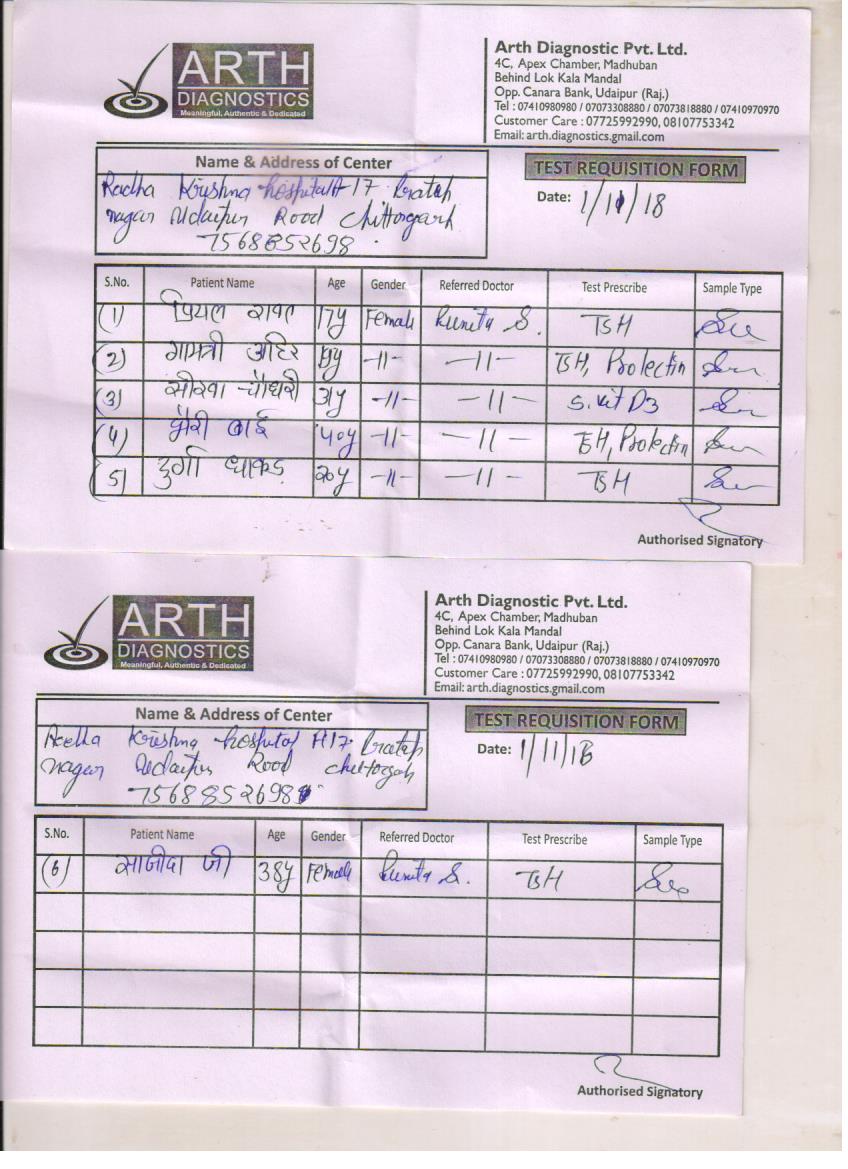 ARTH
DIAGNOSTICS
Meaningful, Authentic & Dedicated
Arth Diagnostic Pvt. Ltd.
4C, Apex Chamber, Madhuban
Behind Lok Kala Mandal
Opp. Canara Bank, Udaipur (Raj.)
Tel : 07410980980 / 07073308880 / 07073818880 / 07410970970
Customer Care : 07725992990, 08107753342
Email: arth.diagnostics.gmail.com
Name & Address of Center
TEST REQUISITION FORM
Radha Krishna hospital A-17 Pratap
nagar Udaipur Rood Chittorgarh
7568852698
Date: 1/11/18
S.No. Patient Name Age Gender Referred Doctor Test Prescribe Sample Type
(1) प्रियल रावल 17y Female Sunita S. TSH
(2) गायत्री अहिर 19y -11- -11- TSH, Prolectin
(3) चौधरी 31y -11- -11- S. Vit D3
(4) बाई 40y -11- -11- TSH, Prolectin
(5) दुर्गा धाकड़ 20y -11- -11- TSH
Authorised Signatory
ARTH
DIAGNOSTICS
Meaningful, Authentic & Dedicated
Arth Diagnostic Pvt. Ltd.
4C, Apex Chamber, Madhuban
Behind Lok Kala Mandal
Opp. Canara Bank, Udaipur (Raj.)
Tel : 07410980980 / 07073308880 / 07073818880 / 07410970970
Customer Care : 07725992990, 08107753342
Email: arth.diagnostics.gmail.com
Name & Address of Center
TEST REQUISITION FORM
Radha Krishna hospital A17 Pratap
nagar Udaipur Rood chittorgah
7568852698
Date: 1/11/18
S.No. Patient Name Age Gender Referred Doctor Test Prescribe Sample Type
(6) साजीदा जी 38y Female Sunita S. TSH
Authorised Signatory